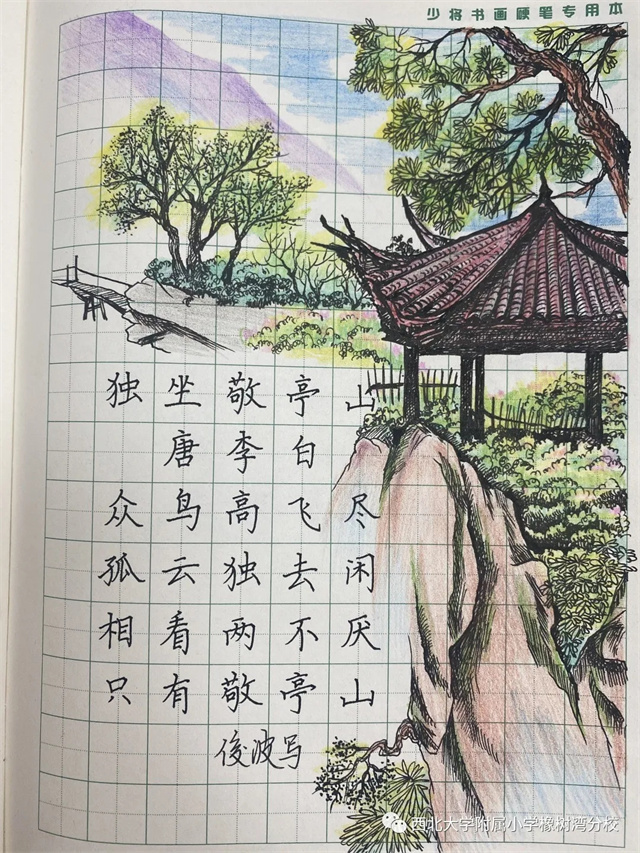 少将书画硬笔专用本
独坐敬亭山
唐李白
众鸟高飞尽
孤云独去闲
相看两不厌
只有敬亭山
俊波写
西北大学附属小学橡树湾分校